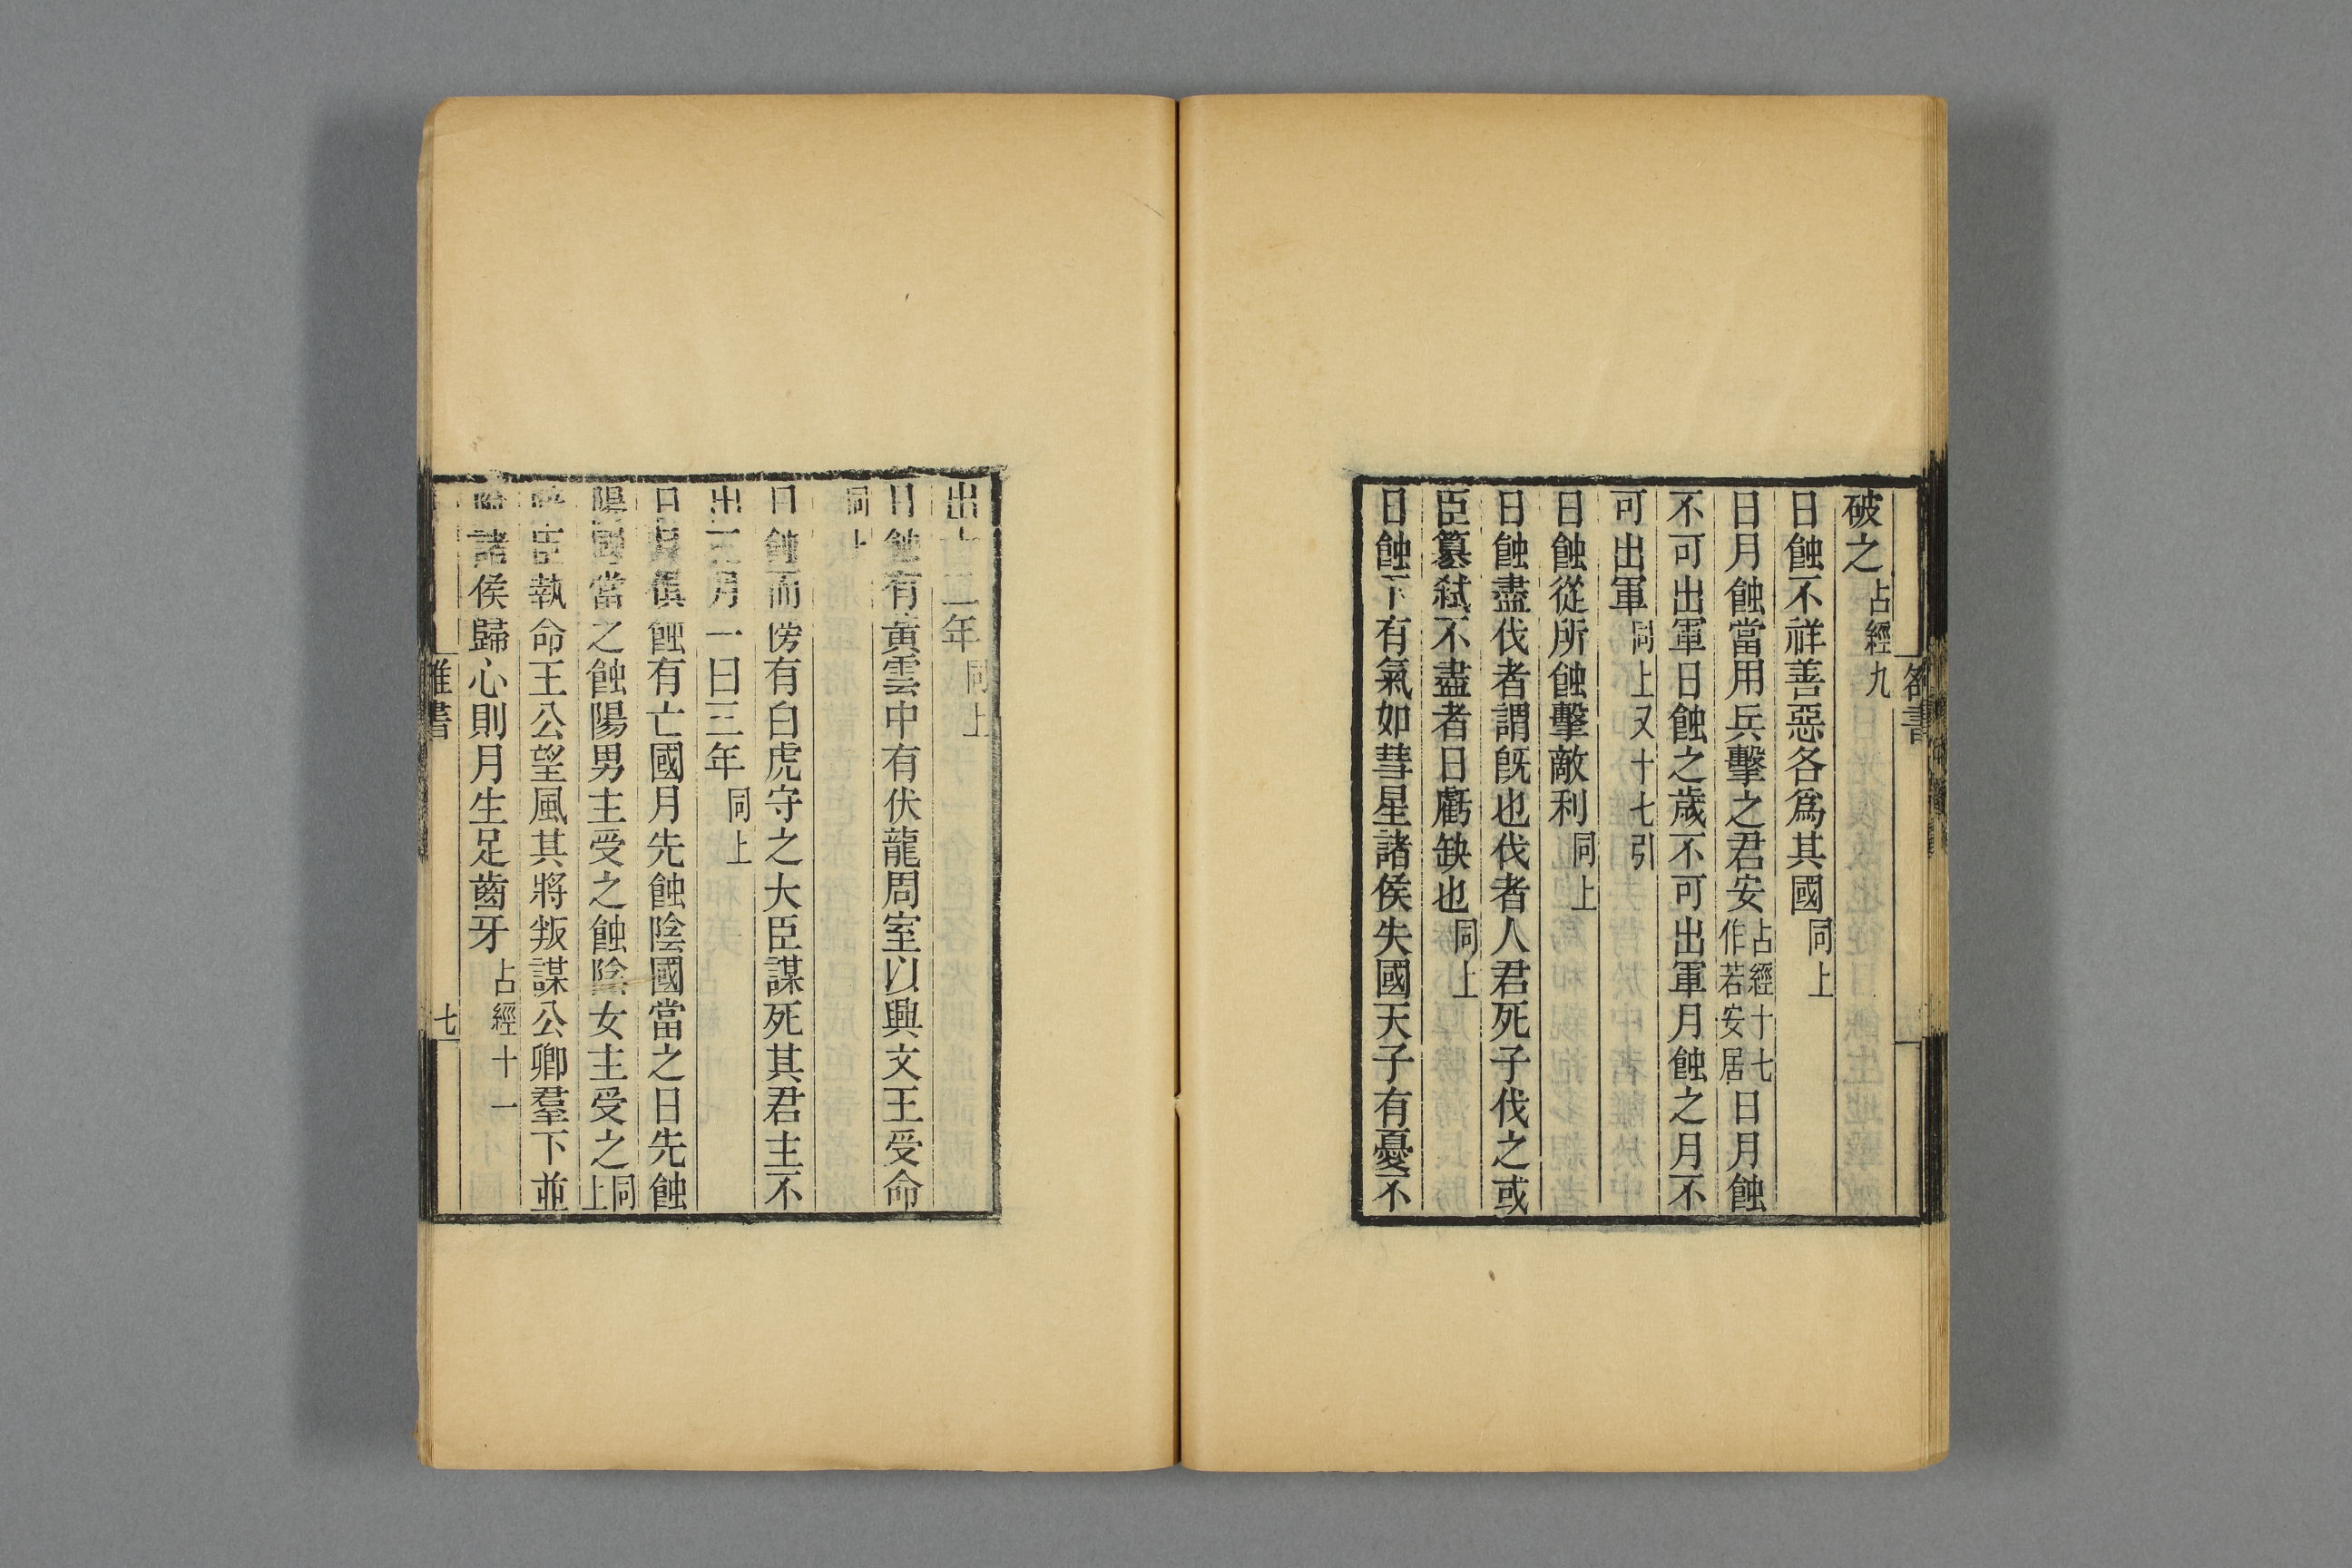 破之占經九
日蝕不祥善惡各爲其國同上
日月蝕當用兵擊之君安占經十七作若安居日月蝕
不可出軍日蝕之歲不可出軍月蝕之月不
可出軍同上又十七引
日蝕從所蝕擊敵利同上
日蝕盡伐者謂旣也伐者人君死子伐之或
臣篡弑不盡者日虧缺也同上
日蝕下有氣如彗星諸侯失國天子有憂不
出二年同上
日蝕有黃雲中有伏龍周室以興文王受命
同上
日蝕而傍有白虎守之大臣謀死其君主不
出三月一曰三年同上
日月俱蝕有亡國月先蝕陰國當之日先蝕
陽國當之蝕陽男主受之蝕陰女主受之同上
臣執命王公望風其將叛謀公卿羣下並
諸侯歸心則月生足齒牙占經十一
雒書
七